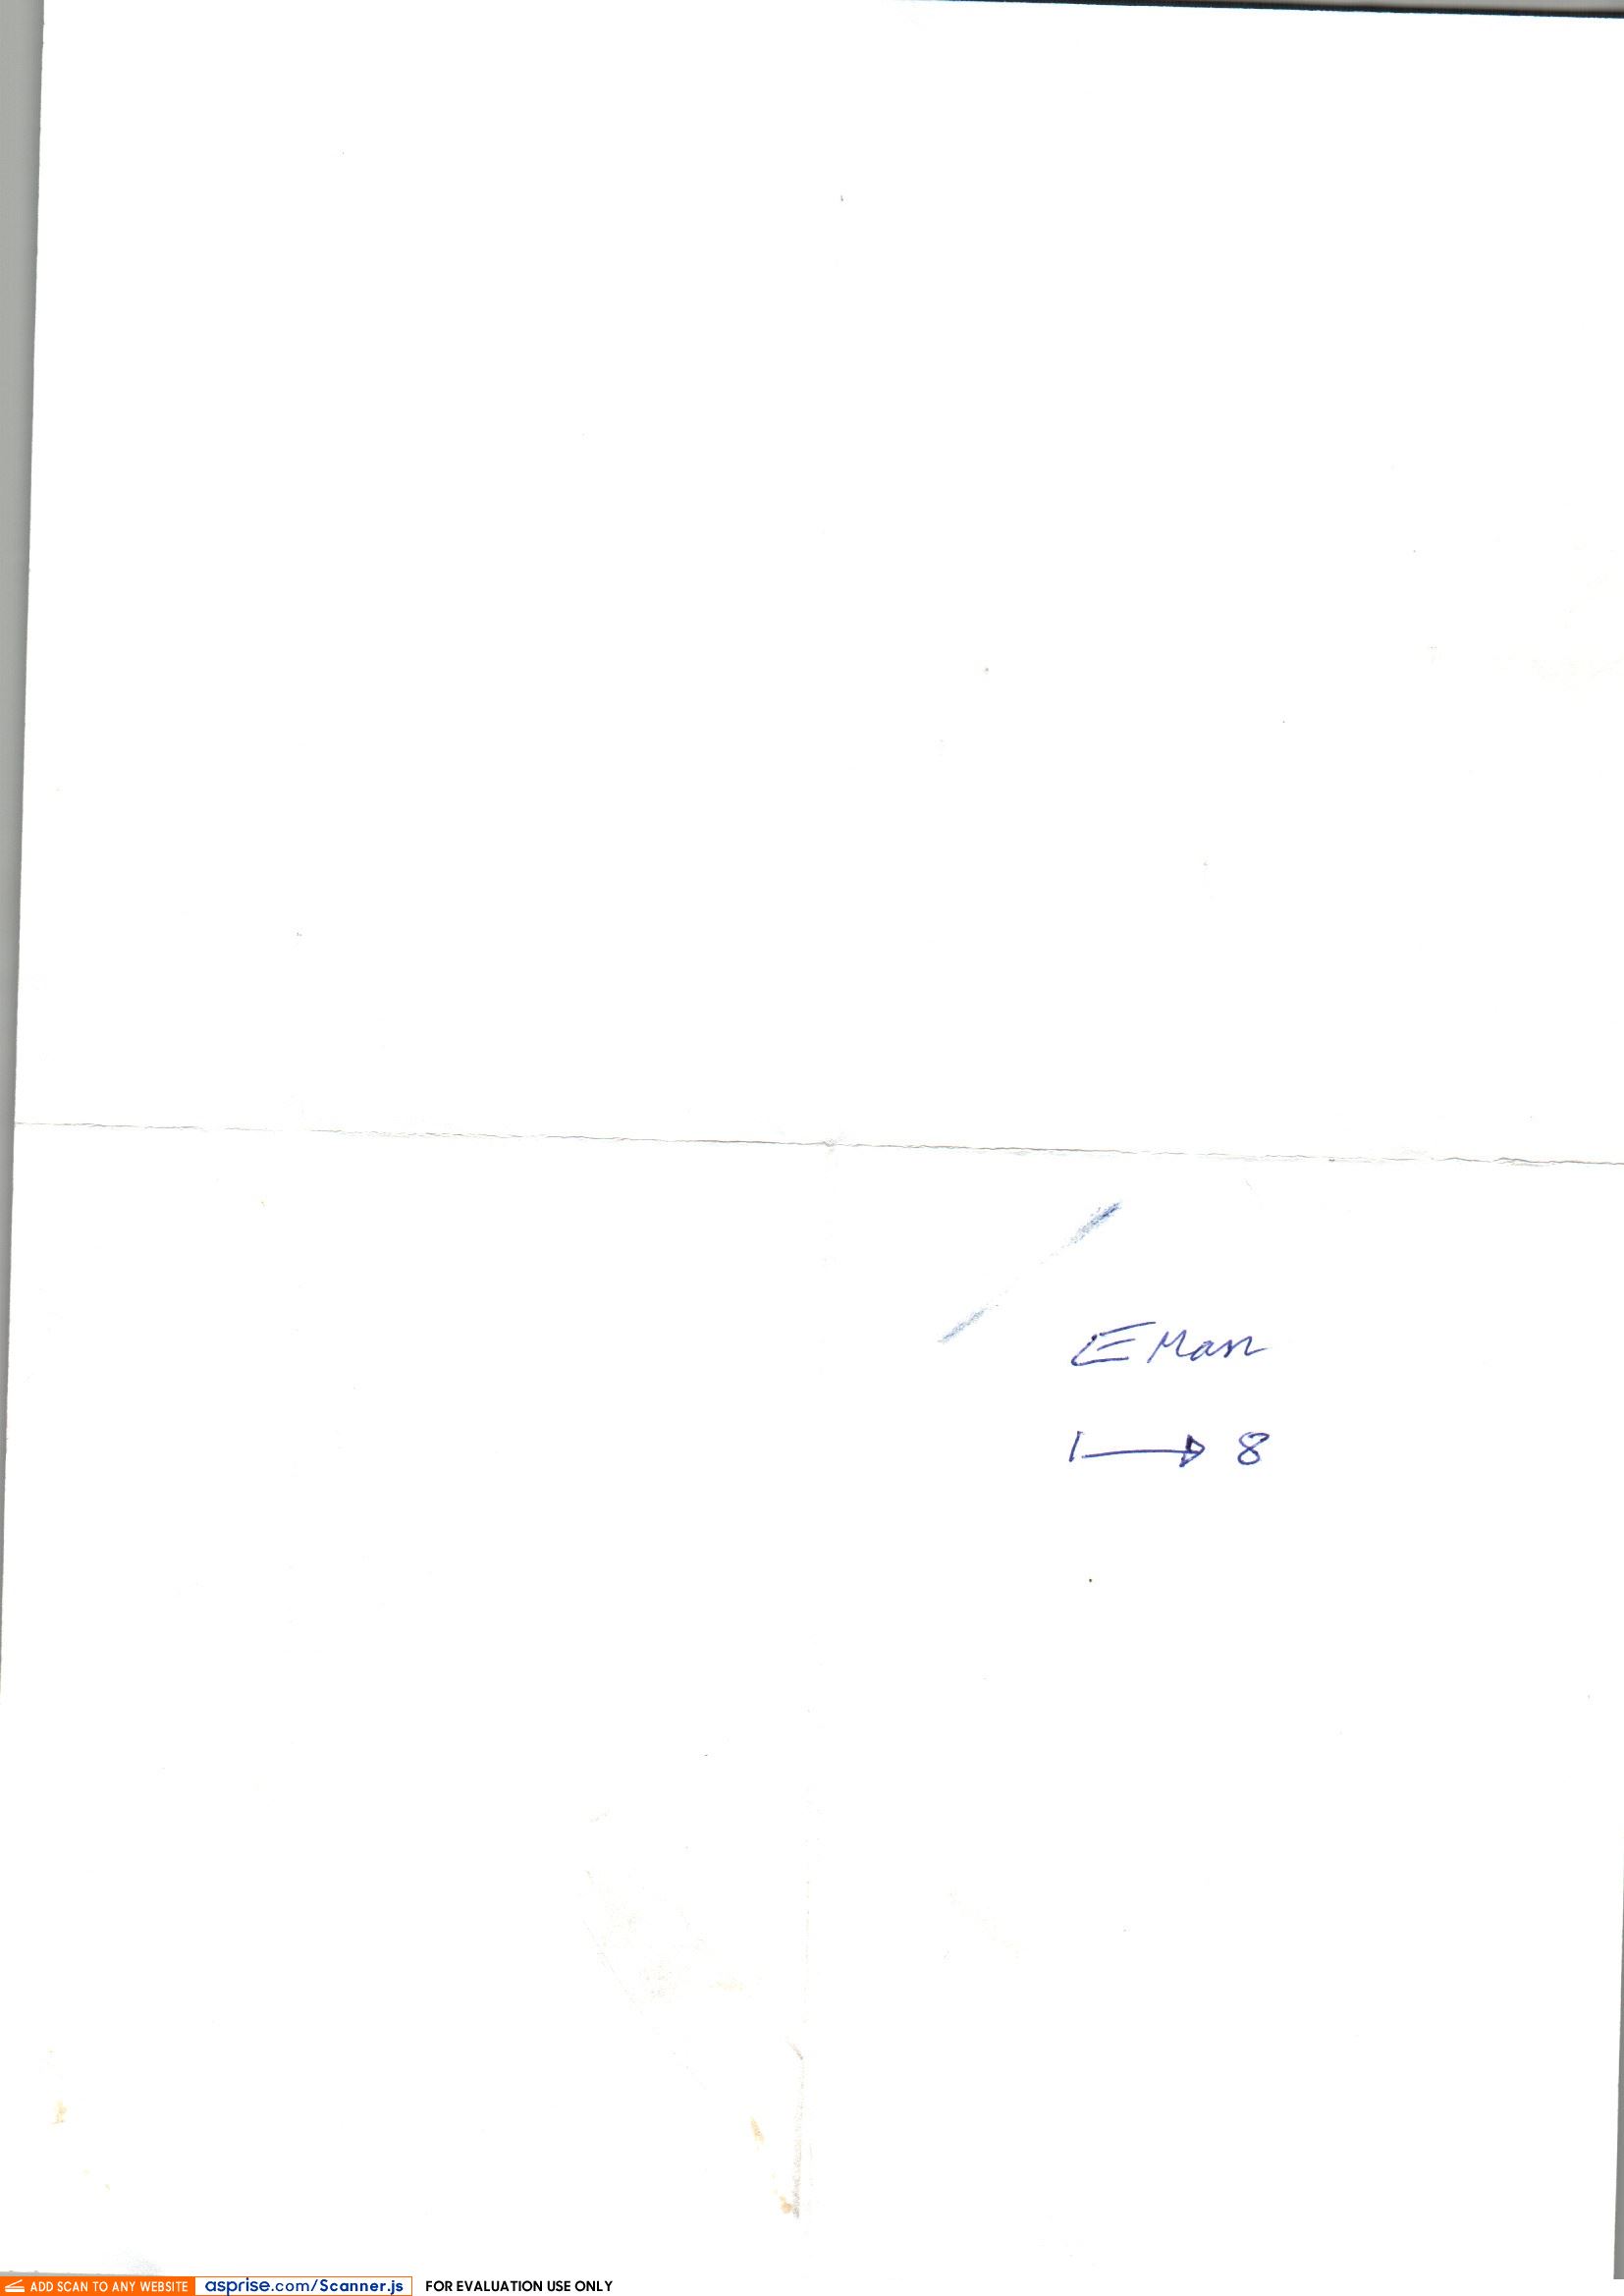 EMan
1 → 8
ADD SCAN TO ANY WEBSITE asprise.com/Scanner.js FOR EVALUATION USE ONLY